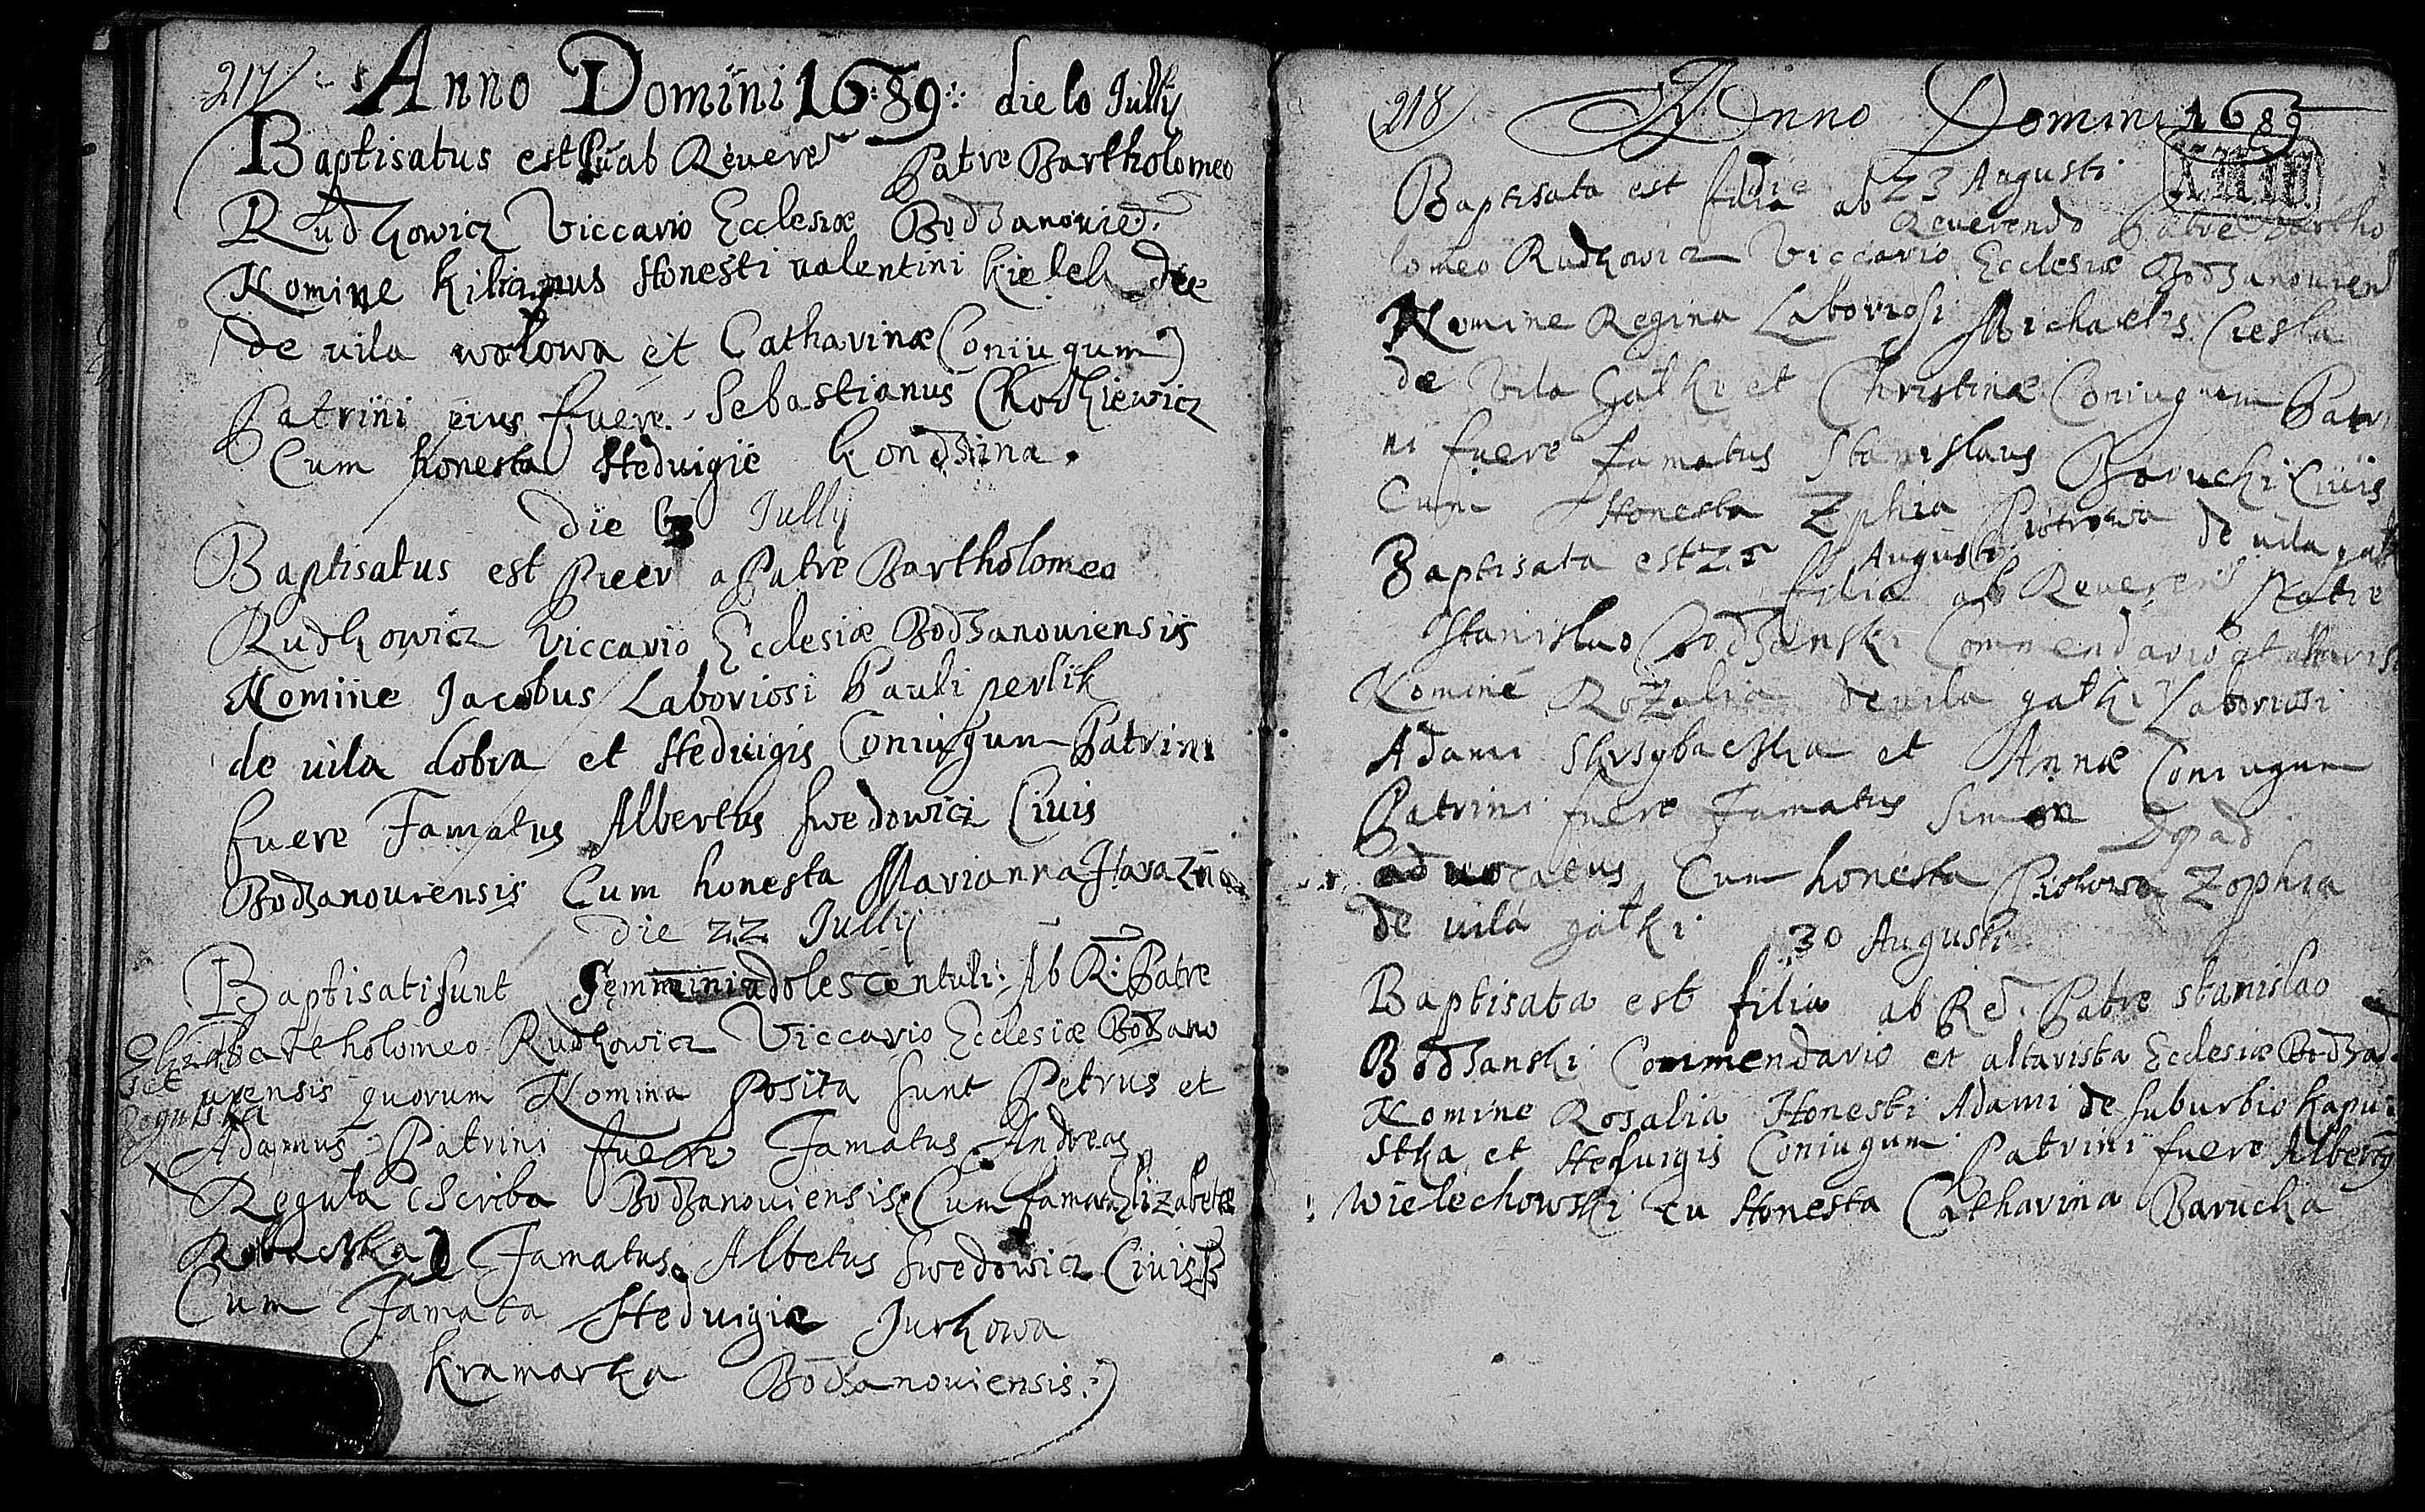 217
Anno Domini 1689 die 10 Jullij
Baptisatus est ab Reuere Patre Bartholomeo
Rudkowicz Viccario Ecclesiæ Bodzanouie
Nomine Kilianus Honesti valentini
de uila wolowa et Catharinæ Coniugum
Patrini eius fuere Sebastianus Chodkiewicz
Cum honesta Heduigie Kondzina
die Jullij
Baptisatus est Puer a Patre Bartholomeo
Rudkowicz Viccario Ecclesiæ Bodzanouiensis
Nomine Jacobus Laboriosi Pauli perlik
de uila dobra et Heduigis Coniugum Patrini
fuere Famatus Albertus swedowicz Ciuis
Bodzanouiensis Cum honesta Marianna
die 22 Jullij
Baptisati sunt Gemmini adolescentuli Ab R: Patre
Bartholomeo Rudkowicz Viccario Ecclesiæ Bodzano
uiensis quorum Nomina Posita sunt Petrus et
Adamus Patrini fuere Famatus Andreas
Regula Scriba Bodzanouiensis Cum famata Elizabeta
Famatus Albetus swedowicz Ciuis B
Cum Famata Heduigia Jurkowa
kramarka Bodzanouiensis
218
Anno Domini 1689
die 23 Augusti
Baptisata est filia ab Reuerendo Patre Bartho
lomeo Rudkowicz Viccario Ecclesiæ Bodzanouien
Nomine Regina Laboriosi Michaelis Ciesla
de Vila Gałki et Christinæ Coniugum Patri
ni fuere famatus Stanislaus Baruchi Ciuis
Cum Honesta Zphia Piotrowa de uila gałk
25 Augusti
Baptisata est filia ab Reueren Patre
Stanislao Bodzanski Commendario et altarist
Nomine Rozalia de uila gałki Laboriosi
Adami et Annæ Coniugum
Patrini fuere Famatus Simon
aduocatus Cum honesta Piotrowa Zophia
de uila gałki
30 Augusti
Baptisata est filia ab Red. Patre stanislao
Bodzanski Commendario et altarista Ecclesiæ Bodzad
Nomine Rosalia Honesti Adami de suburbio kapu
stka et Heduigis Coniugum Patrini fuere Albertg
Wielechowski cu Honesta Catharina Barucka